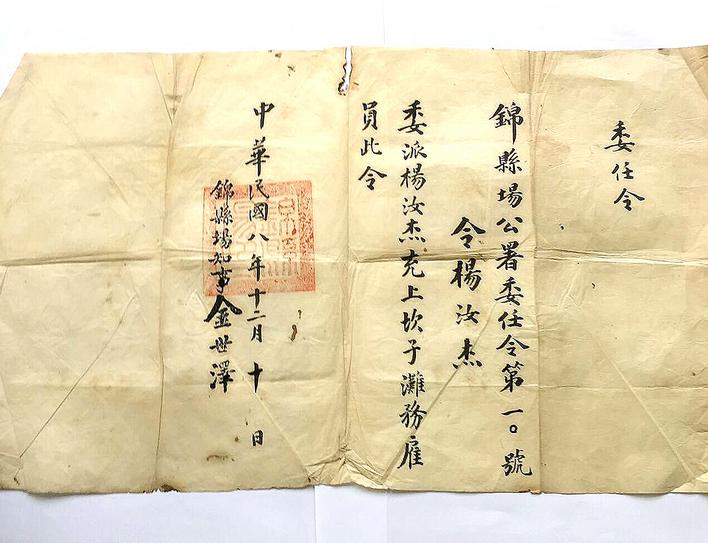 委任令
錦縣場公署委任令第一〇號
令楊汝杰
委派楊汝杰充上坎子灘務雇
員此令
中華民國八年十二月十日
錦縣場知事金世澤